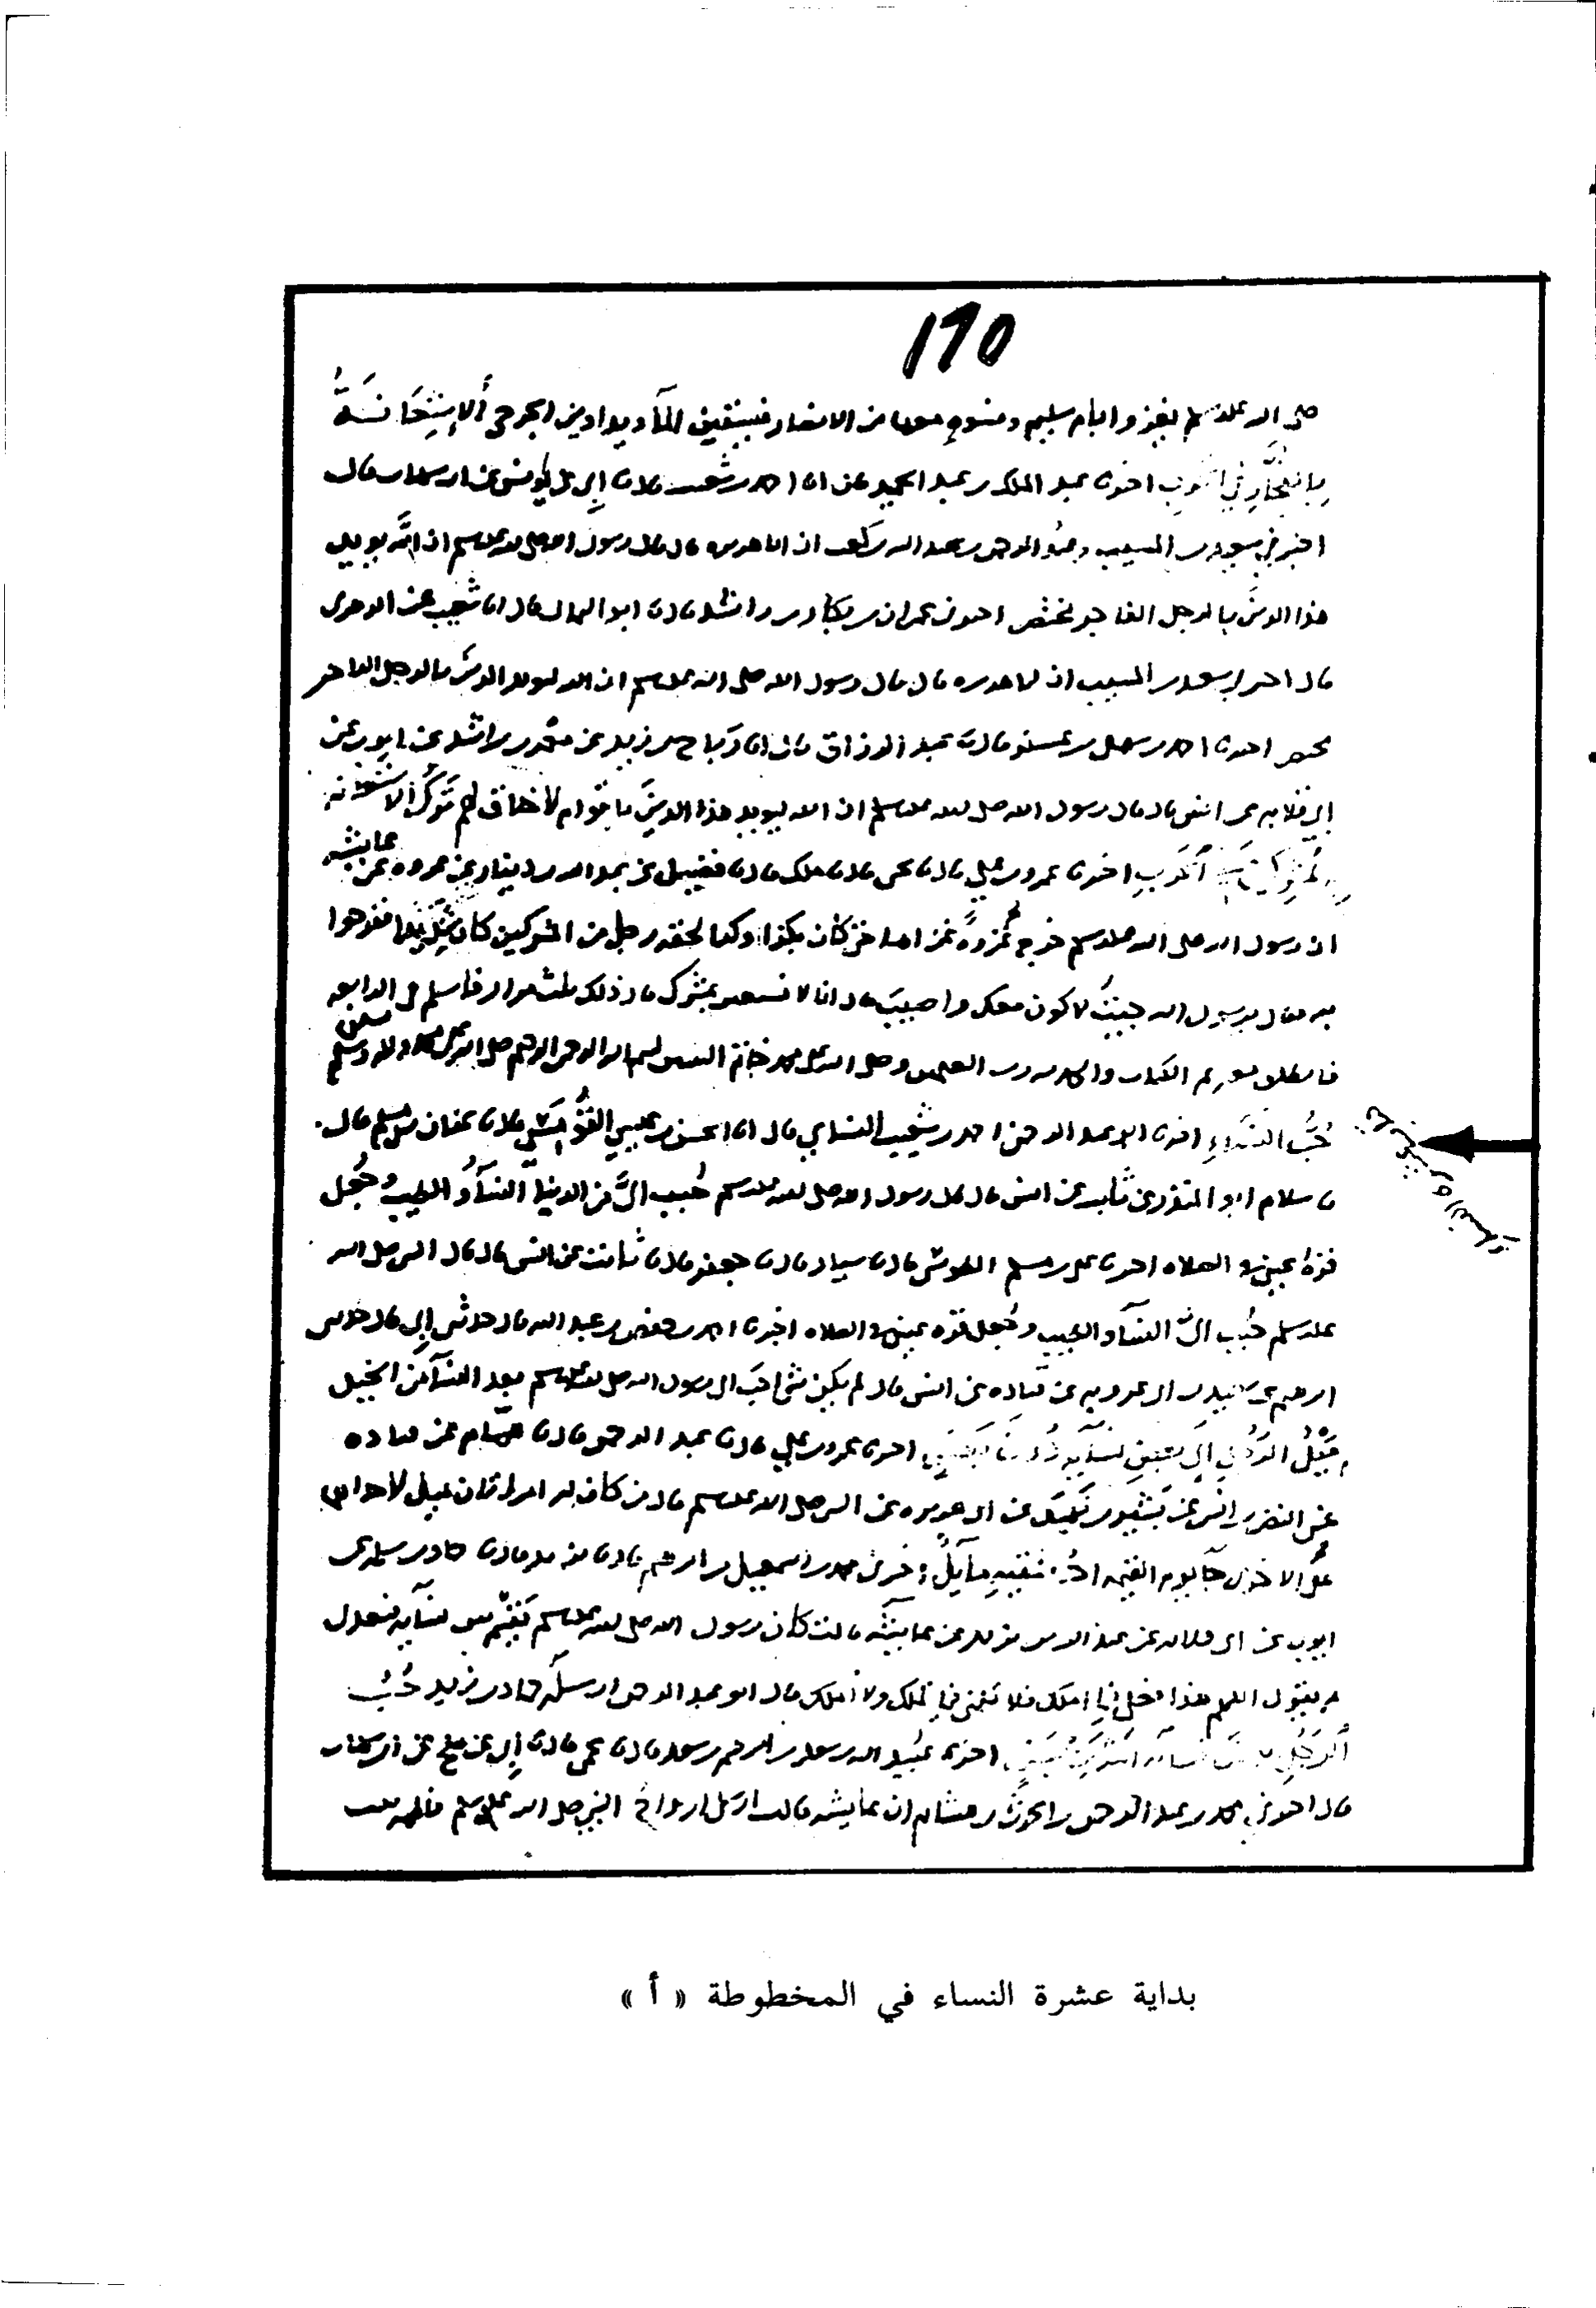 ١٦٥
صلى الله عليه وسلم يغزو ابام سليم ونسوه معها من الانصار فيسقين الما ويداوين الجرحى الاستعانة
بالفجار في الحرب اخبرنا عبد الملك بن عبد الحميد عن احمد بن شعيب قال نا ابي عن يونس عن ابن شهاب قال
اخبرني سعيد بن المسيب وعبد الرحمن بن عبد الله بن كعب ان ابا هريره قال قال رسول الله صلى الله عليه وسلم ان الله يويد
هذا الدين بالرجل الفاجر مختصر اخبرني عمران بن بكار بن راشد قال نا ابو اليمان قال انا شعيب عن الزهري
قال اخبرني سعيد بن المسيب ان ابا هريره قال قال رسول الله صلى الله عليه وسلم ان الله ليويد الدين بالرجل الفاجر
مختصر اخبرنا محمد بن سهل بن عسكر قال نا عبد الرزاق قال انا رباح بن زيد عن معمر بن راشد عن ايوب عن
ابي قلابه عن انس قال قال رسول الله صلى الله عليه وسلم ان الله ليويد هذا الدين باقوام لا خلاق لهم ترك الاستعانه
بالمشركين في الحرب اخبرنا عمرو بن علي قال نا يحيى قال نا ملك قال نا فضيل عن عبد الله بن دينار عن عروه عن عايشه
ان رسول الله صلى الله عليه وسلم خرج لغزوه غزاها حتى كان بكذا وكذا لحقه رجل من المشركين كان شديدا ففرحوا
به فقال يرسول الله جيت لاكون معك واصيب قال انا لا نستعين بمشرك قال ذلك ثلث مرار فاسلم في الرابعه
فانطلق معهم تم الكتاب والحمد لله رب العلمين وصلى الله على محمد خاتم النبيين بسم الله الرحمن الرحيم صلى الله على محمد واله وسلم
حب النساء اخبرنا ابو عبد الرحمن احمد بن شعيب النساي قال انا الحسين بن عيسى القومسي قال نا عفان بن مسلم قال
نا سلام ابو المنذر عن ثابت عن انس قال قال رسول الله صلى الله عليه وسلم حبب الي من الدنيا النسا والطيب وجعل
قره عيني في الصلاه اخبرنا علي بن مسلم الطوسي قال نا سيار قال نا جعفر قال نا ثابت عن انس قال قال النبي صلى الله
عليه وسلم حبب الي النسا والطيب وجعل قره عيني في الصلاه اخبرنا احمد بن حفص بن عبد الله قال حدثني ابي قال حدثني
ابرهيم عن سعيد بن ابي عروبه عن قتاده عن انس قال لم يكن شي احب الى رسول الله صلى الله عليه وسلم بعد النسا من الخيل
ميل الرجل الى بعض نسايه دون بعض اخبرنا عمرو بن علي قال نا عبد الرحمن قال نا همام عن قتاده
عن النضر بن انس عن بشير بن نهيك عن ابي هريره عن النبي صلى الله عليه وسلم قال من كان له امراتان يميل لاحداهما
على الاخرى جا يوم القيمه احد شقيه مايل اخبرني محمد بن اسمعيل بن ابرهيم قال نا يزيد قال نا حماد بن سلمه عن
ايوب عن ابي قلابه عن عبد الله بن يزيد عن عايشه قالت كان رسول الله صلى الله عليه وسلم يقسم بين نسايه فيعدل
ثم يقول اللهم هذا فعلي فيما املك فلا تلمني فيما تملك ولا املك قال ابو عبد الرحمن ارسله حماد بن زيد حب
الرجل بعض نسايه اكثر من بعض اخبرنا عبيد الله بن سعد بن ابرهيم بن سعد قال نا عمي قال نا ابي عن صلح عن ابن شهاب
قال اخبرني محمد بن عبد الرحمن بن الحرث بن هشام ان عايشه قالت ارسل ازواج النبي صلى الله عليه وسلم فاطمه بنت
بداية عشرة النساء في المخطوطة « أ »